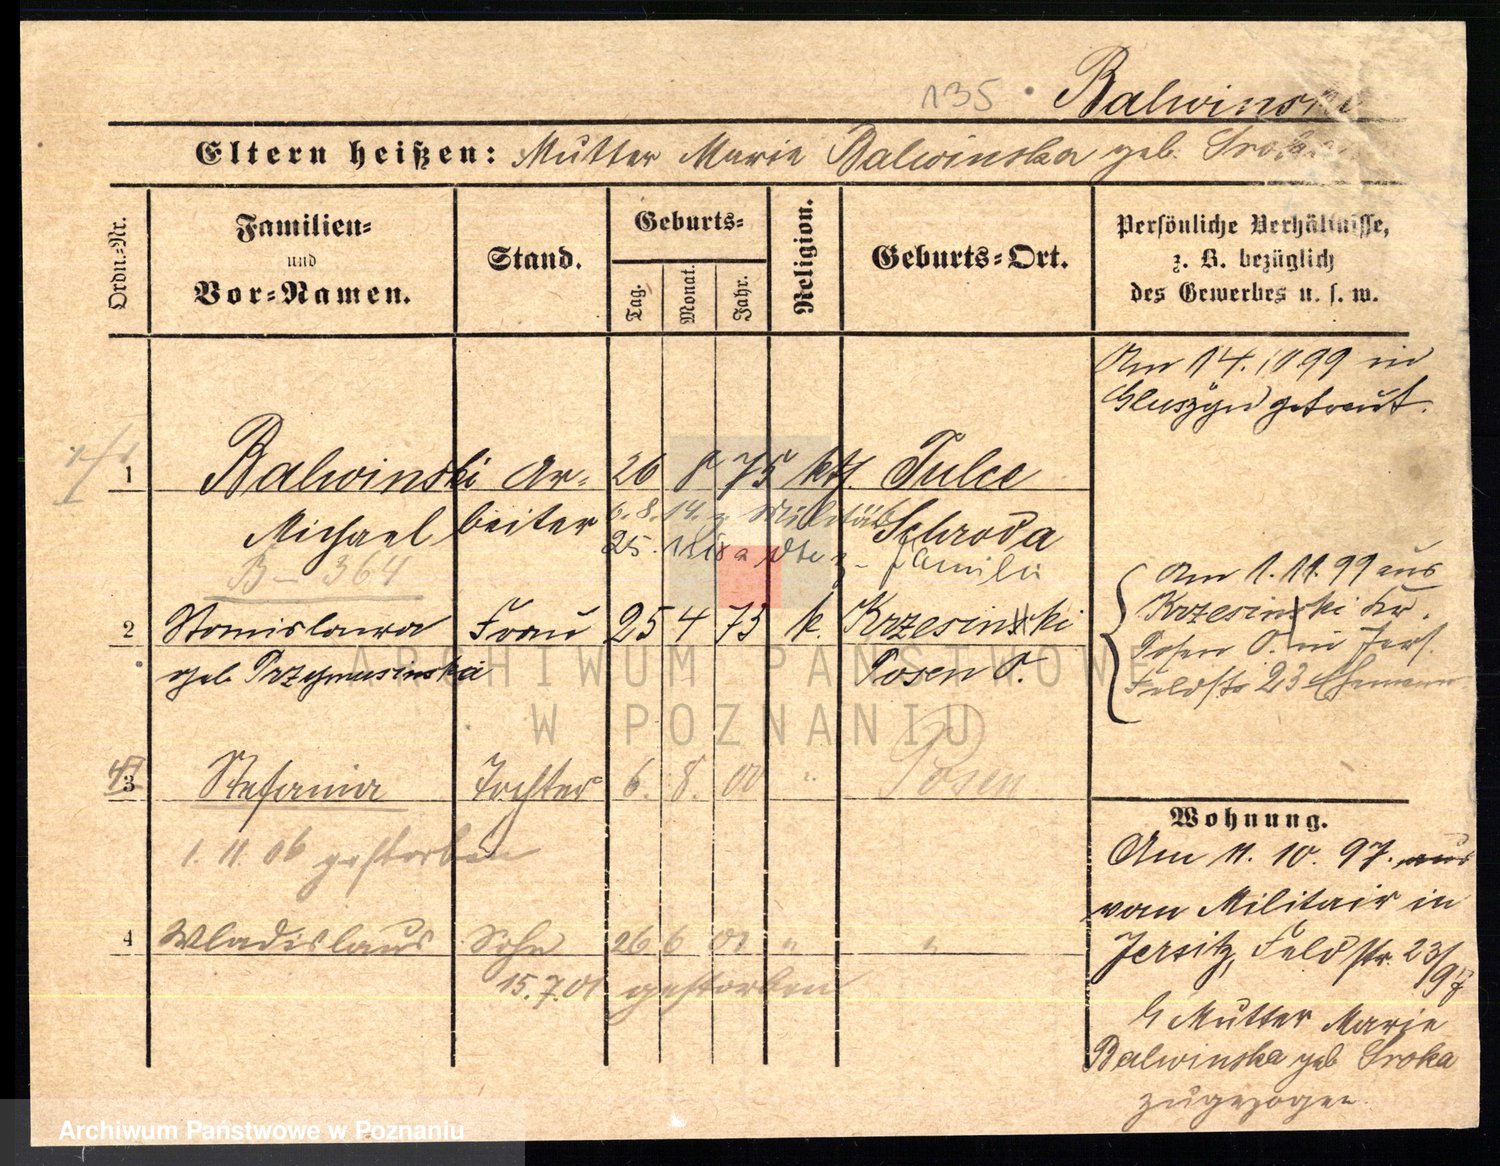 135 Balwinski
Eltern heißen: Mutter Marie Balwinska geb. Sroka
Ordn.-Nr.
Familien-
und
Vor-Namen.
Stand.
Geburts-
Tag.
Monat.
Jahr.
Religion.
Geburts-Ort.
Persönliche Verhältnisse,
z. B. bezüglich
des Gewerbes u. s. w.
Am 14. 10 99 in
Gluszyn getraut.
1 Balwinski Ar- 26 8 75 kth. Tulce
Michael beiter 6. 8. 14. z Militär Schroda
25. z Familie
B - 364
2 Stanislawa Frau 25 4 73 k. Krzesinski
geb Przymusinska Posen O.
Am 1. 11. 99 aus
Krzesinski Kr.
Posen O. in Jers.
Feldstr 23 Ehemann
3 Stefania Tochter 6. 8. 00 " Posen
1. 11. 06 gestorben
4 Wladislaus Sohn 26 6 01 " "
15. 7. 01 gestorben
Wohnung.
Am 11. 10. 97. aus
vom Militair in
Jersitz, Feldstr. 23/97
b Mutter Marie
Balwinska geb Sroka
zugezogen.
ARCHIWUM PAŃSTWOWE
W POZNANIU
Archiwum Państwowe w Poznaniu